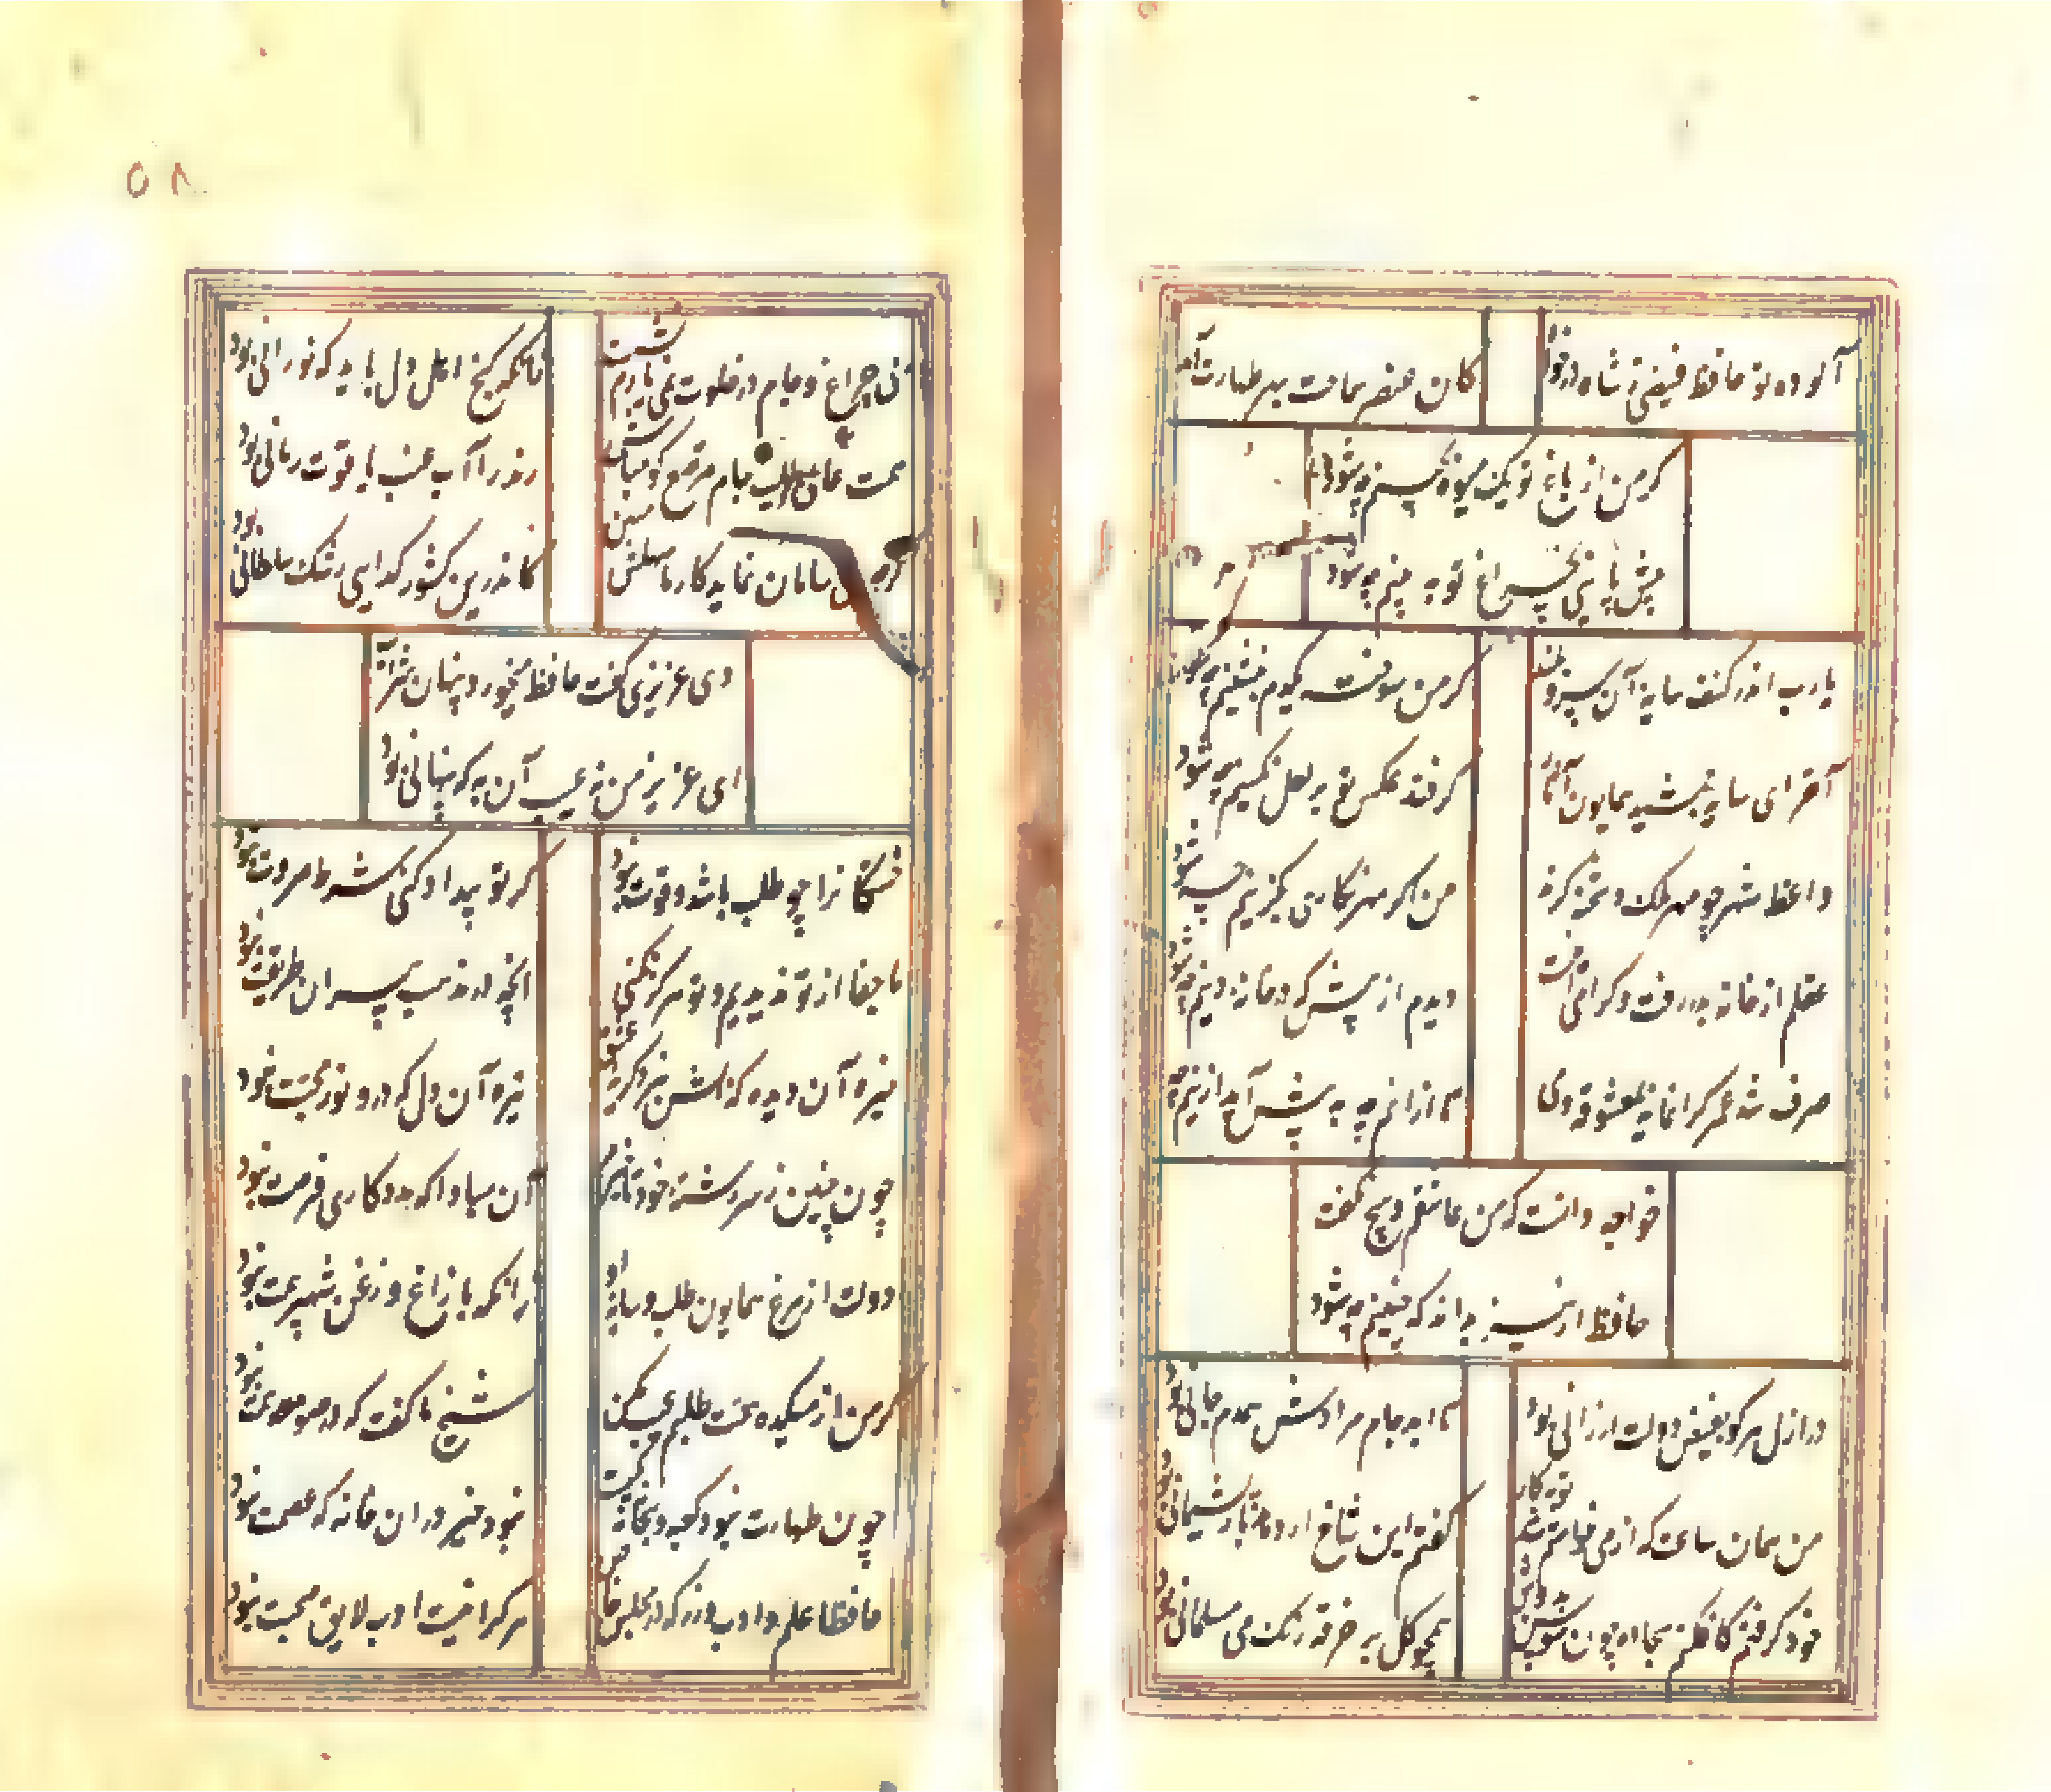 آلوده تو حافظ فیضی ز شاه درخواه
کان عنصر سماحت بهر طهارت آمد
گر من از باغ تو یک میوه بچینم چه شود
پیش پائی بچراغ تو به بینم چه شود
یارب اندر کنف سایه آن سرو بلند
گر من سوخته یکدم بنشینم چه شود
آخر ای خاتم جمشید همایون آثار
گر فتد عکس تو بر لعل نگینم چه شود
واعظ شهر چو مهر ملک و شحنه گزید
من اگر مهر نگاری بگزینم چه شود
عقلم از خانه بدر رفت و گر می اینست
دیدم از پیش که در خانه دینم چه شود
صرف شد عمر گرانمایه بمعشوقه و می
تا از آنم چه به پیش آید ازینم چه شود
خواجه دانست که من عاشقم و هیچ نگفت
حافظ ار نیز بداند که چنینم چه شود
در ازل هر کو بفیض دولت ارزانی بود
تا ابد جام مرادش همدم جانی بود
من همان ساعت که از می خواستم شد توبه کار
گفتم این شاخ ار دهد باری پشیمانی بود
خود گرفتم کافکنم سجاده چون سوسن بدوش
همچو گل بر خرقه رنگ می مسلمانی بود
۵۸
بی چراغ و جام در خلوت نمی یارم نشست
زانکه کنج اهل دل باید که نورانی بود
همت عالی طلب جام مرصع گو مباش
رند را آب عنب یاقوت رمانی بود
گرچه بی سامان نماید کار ما سهلش مبین
کاندرین کشور گدایی رشک سلطانی بود
دی عزیزی گفت حافظ میخورد پنهان شراب
ای عزیز من نه عیب آن به که پنهانی بود
خستگانرا چو طلب باشد و قوت نبود
گر تو بیداد کنی شرط مروت نبود
ما جفا از تو ندیدیم و تو هرگز نکنی
آنچه در مذهب پیران طریقت نبود
خیره آن دیده که آبش نبرد گریه عشق
تیره آن دل که درو نور محبت نبود
چون چنین ز سررشته خود
آن مبادا که مددکاری فرصت نبود
دولت از مرغ همایون طلب و سایه او
زانکه با زاغ و زغن شهپر همت نبود
گر من از میکده همت طلبم عیب مکن
شیخ ما گفت که در صومعه همت نبود
چون طهارت نبود کعبه و بتخانه یکیست
نبود خیر در آن خانه که عصمت نبود
حافظا علم و ادب ورز که در مجلس خاص
هر کرا نیست ادب لایق صحبت نبود